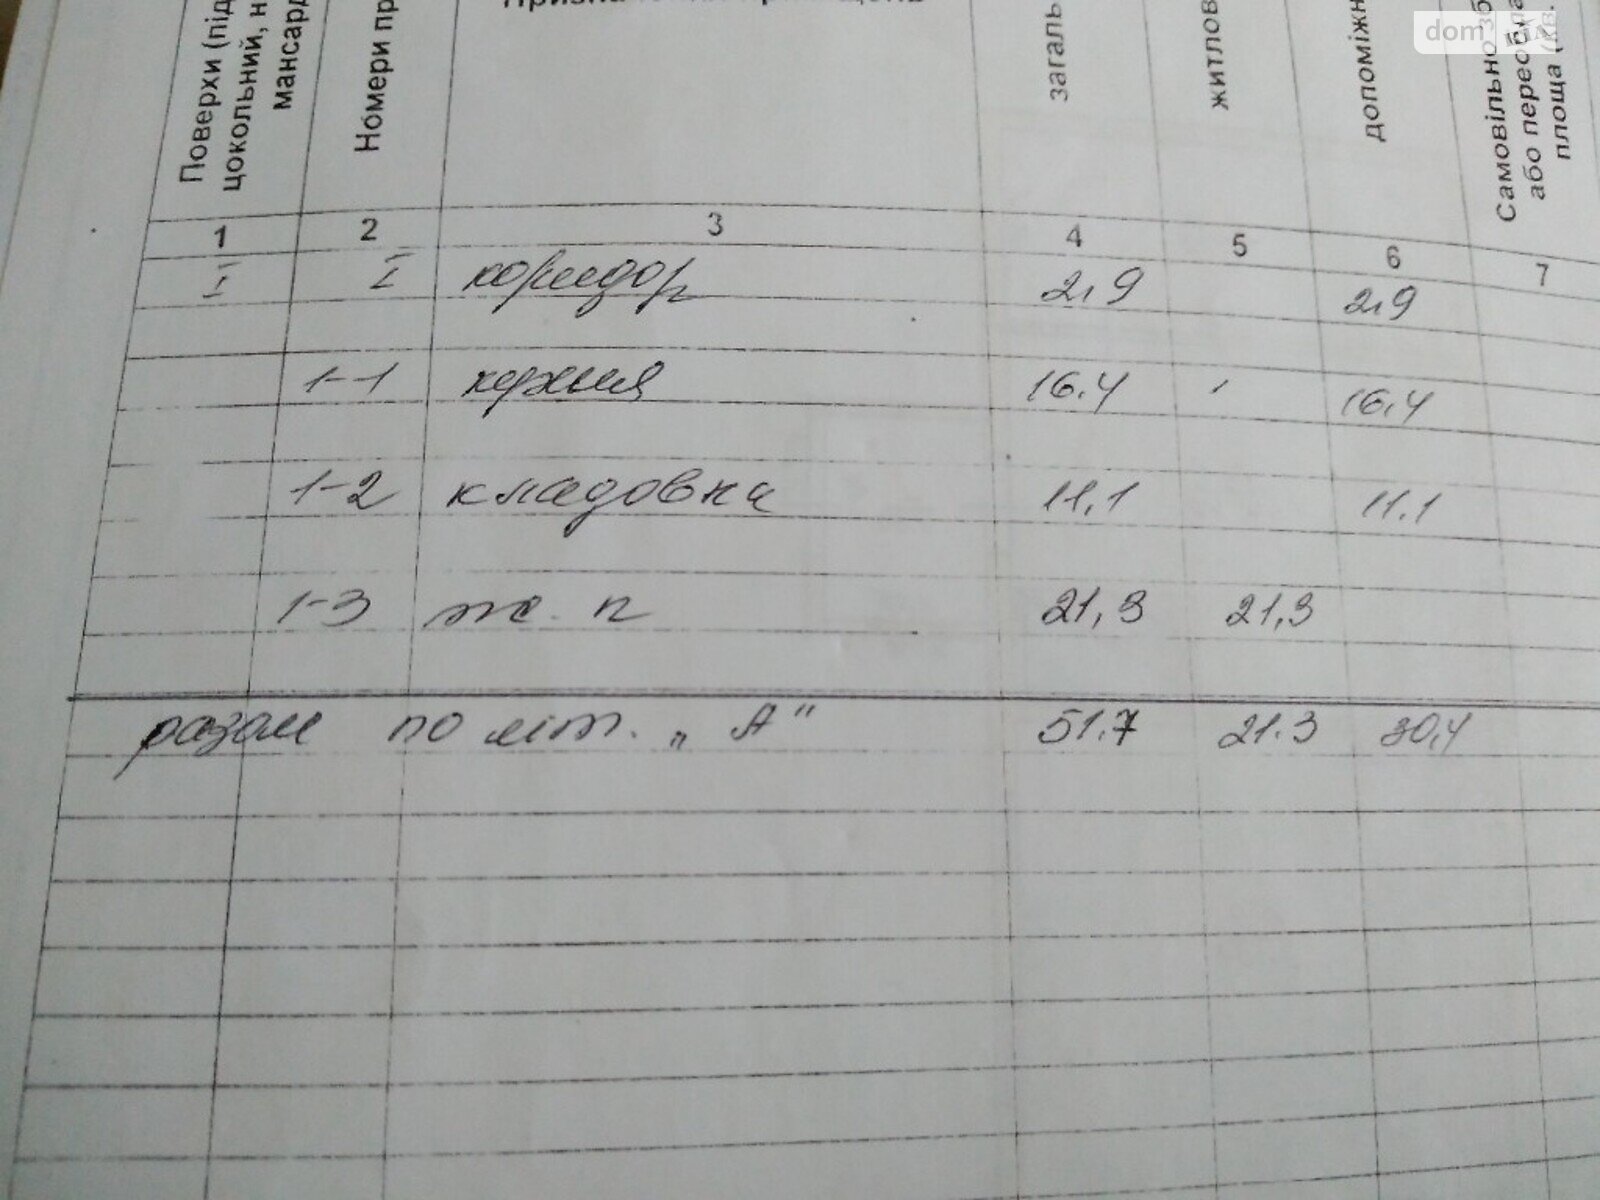 Поверхи (під
цокольний, н
мансард
Номери пр
загаль
житлов
допоміжн
Самовільно зб
або переобла
площа (кв.
dom
1 2 3 4 5 6 7
I I коридор 2,9 2,9
1-1 кухня 16.4 16,4
1-2 кладовка 11,1 11.1
1-3 ж. п 21,3 21,3
разом по літ. „А" 51.7 21.3 30,4